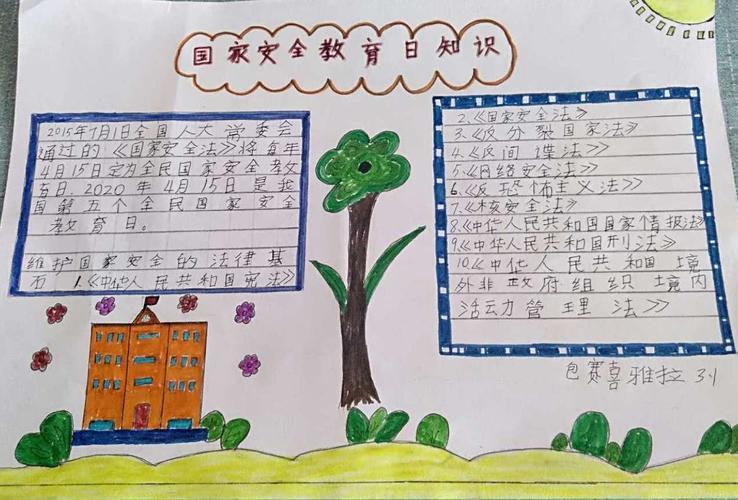 国家安全教育日知识
2015年7月1日全国人大常委会
通过的《国家安全法》将每年
4月15日定为全民国家安全教
育日。2020年4月15日是我
国第五个全民国家安全
教育日。
维护国家安全的法律基
1.《中华人民共和国宪法》
2.《国家安全法》
3.《反分裂国家法》
4.《反间谍法》》
5.《网络安全法》
6.《反恐怖主义法》》
7.《核安全法》
8.《中华人民共和国国家情报法》
9.《中华人民共和国刑法》
10.《中华人民共和国境
外非政府组织境内
活动管理法》》
包赛喜雅拉 31